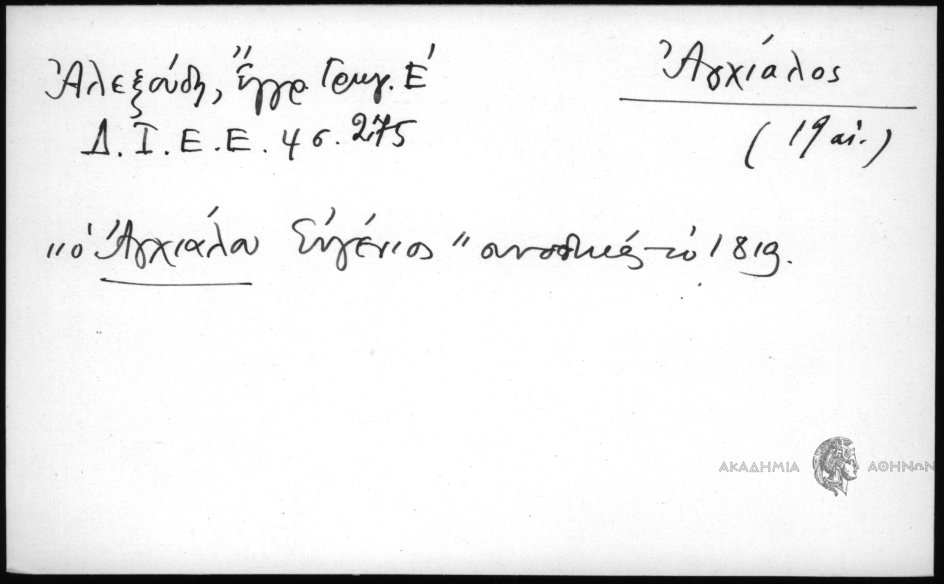 Ἀλεξούδη, Ἔγγρ Γρηγ. Ε´
Δ. Ι. Ε. Ε. 4 6. 275
Ἀγχίαλος
(19 αἰ.)
"ὁ Ἀγχιάλου Εὐγένιος" τὸ 1819.
ΑΚΑΔΗΜΙΑ ΑΘΗΝΩΝ